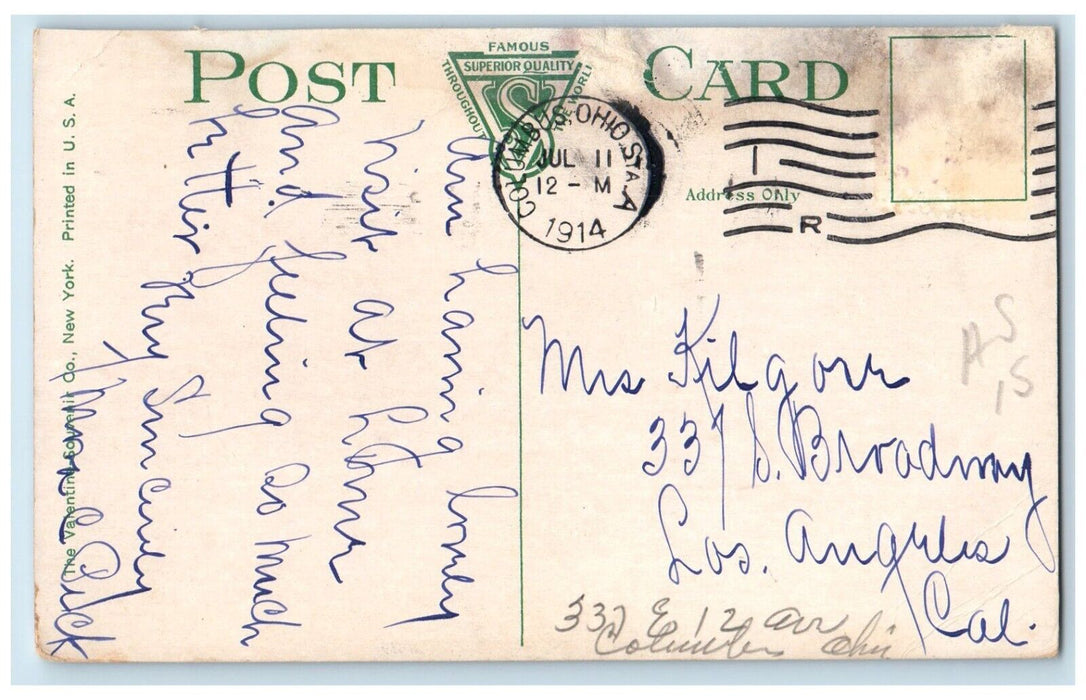 POST CARD
FAMOUS
SUPERIOR QUALITY
THROUGHOUT THE WORLD
VS
COLUMBUS, OHIO STA. A
JUL 11
12 - M
1914
R
Address Only
The Valentine Souvenir Co., New York. Printed in U. S. A.
Am having lovely
visit at home
and feeling so much
better
Sincerely
Mrs Kilgore
337 S. Broadway
Los. Angeles
Cal.
AS
IS
337 E 12 Ave
Columbus Ohio